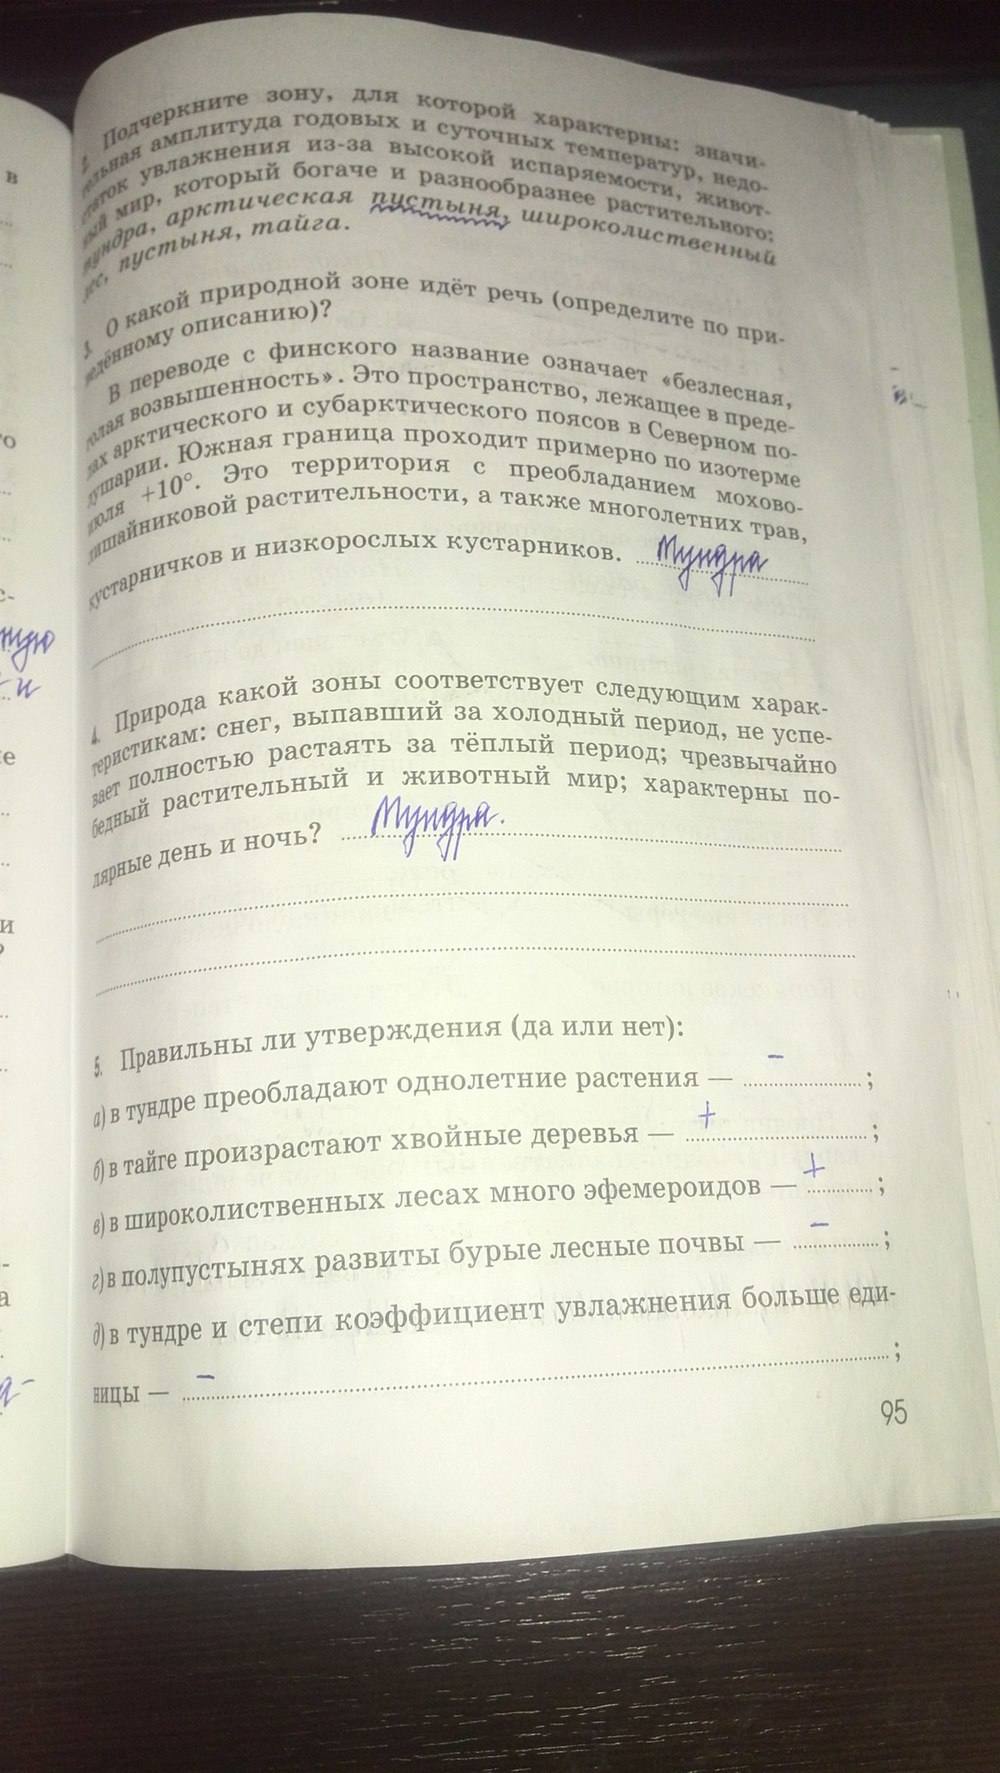 2. Подчеркните зону, для которой характерны: значи-
тельная амплитуда годовых и суточных температур, недо-
статок увлажнения из-за высокой испаряемости, живот-
ный мир, который богаче и разнообразнее растительного:
тундра, арктическая пустыня, широколиственный
лес, пустыня, тайга.
3. О какой природной зоне идёт речь (определите по при-
ведённому описанию)?
В переводе с финского название означает «безлесная,
голая возвышенность». Это пространство, лежащее в преде-
лах арктического и субарктического поясов в Северном по-
лушарии. Южная граница проходит примерно по изотерме
июля +10°. Это территория с преобладанием мохово-
лишайниковой растительности, а также многолетних трав,
кустарничков и низкорослых кустарников. Тундра
4. Природа какой зоны соответствует следующим харак-
теристикам: снег, выпавший за холодный период, не успе-
вает полностью растаять за тёплый период; чрезвычайно
бедный растительный и животный мир; характерны по-
лярные день и ночь? Тундра.
5. Правильны ли утверждения (да или нет):
а) в тундре преобладают однолетние растения — - ;
б) в тайге произрастают хвойные деревья — + ;
в) в широколиственных лесах много эфемероидов — + ;
г) в полупустынях развиты бурые лесные почвы — - ;
д) в тундре и степи коэффициент увлажнения больше еди-
ницы — - ;
95